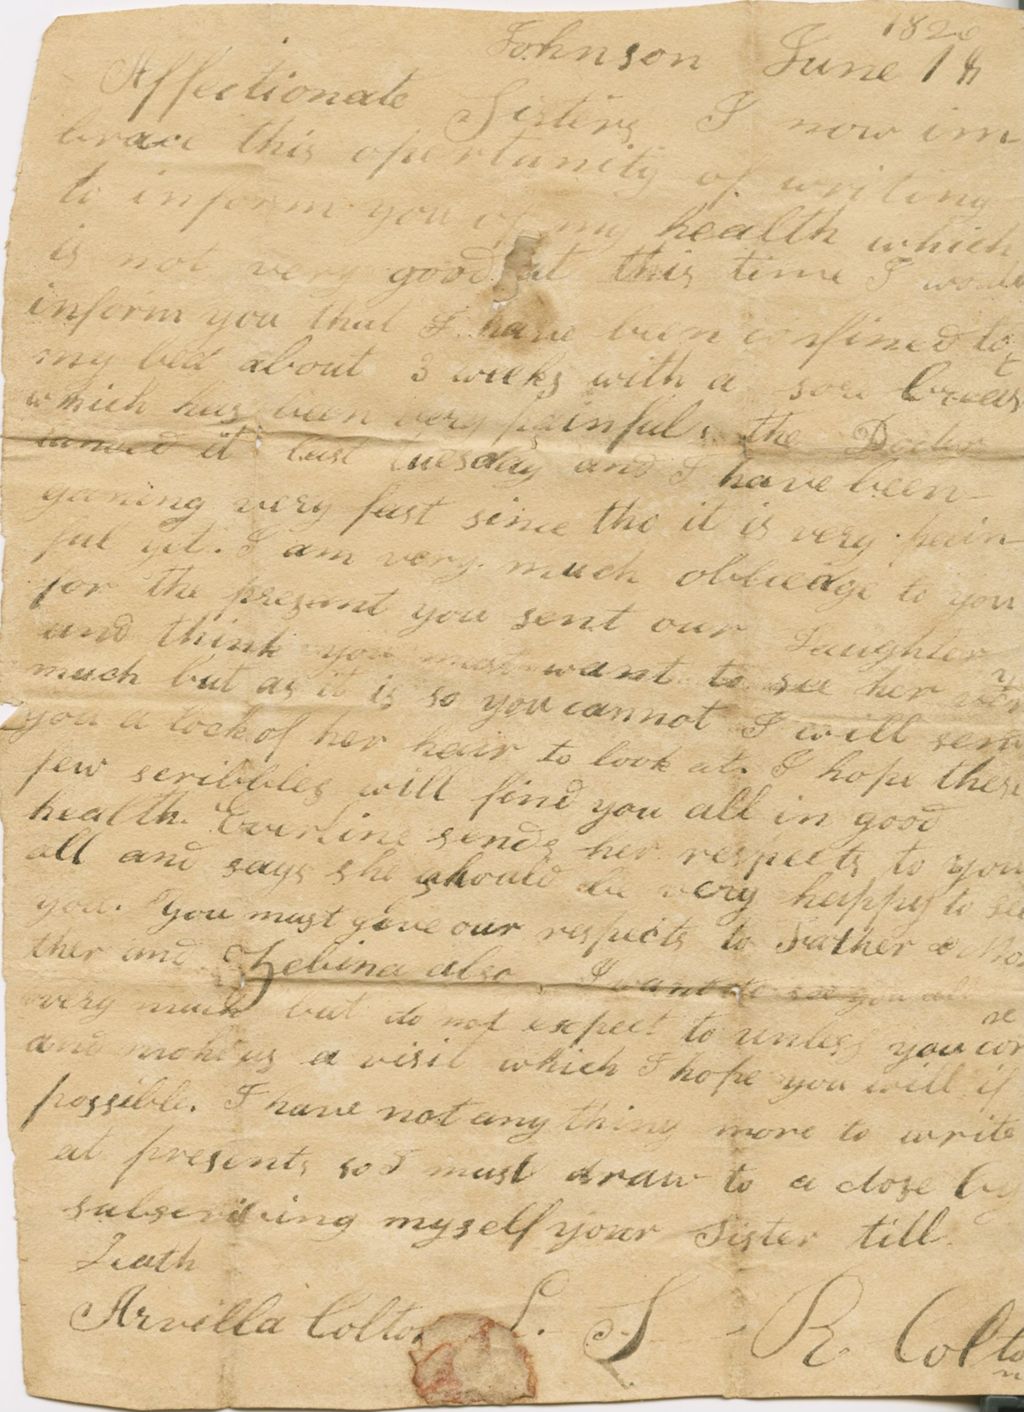 Johnson June 18 1826
Affectionate Sisters I now im
brace this opertunity of writing
to inform you of my health which
is not very good at this time I would
inform you that I have been confined to
my bed about 3 weeks with a sore breast
which has been very painful, the Docter
lanced it last tuesday and I have been
ganing very fast since tho it is very pain
ful yet. I am very much obliedge to you
for the present you sent our Daughter
and think you must want to see her very
much but as it is so you cannot I will send
you a lock of her hair to look at. I hope these
few scribbles will find you all in good
health. Everline sends her respects to you
all and says she should be very happy to see
you. you must give our respects to Father & Mo
ther and Zebina also, I want to see you all
very much but do not expect to unless you come
and make us a visit which I hope you will if
possible. I have not any thing more to write
at present, so I must draw to a close by
subscribing myself your Sister till
Death
Arvilla Colton L. S R Colton